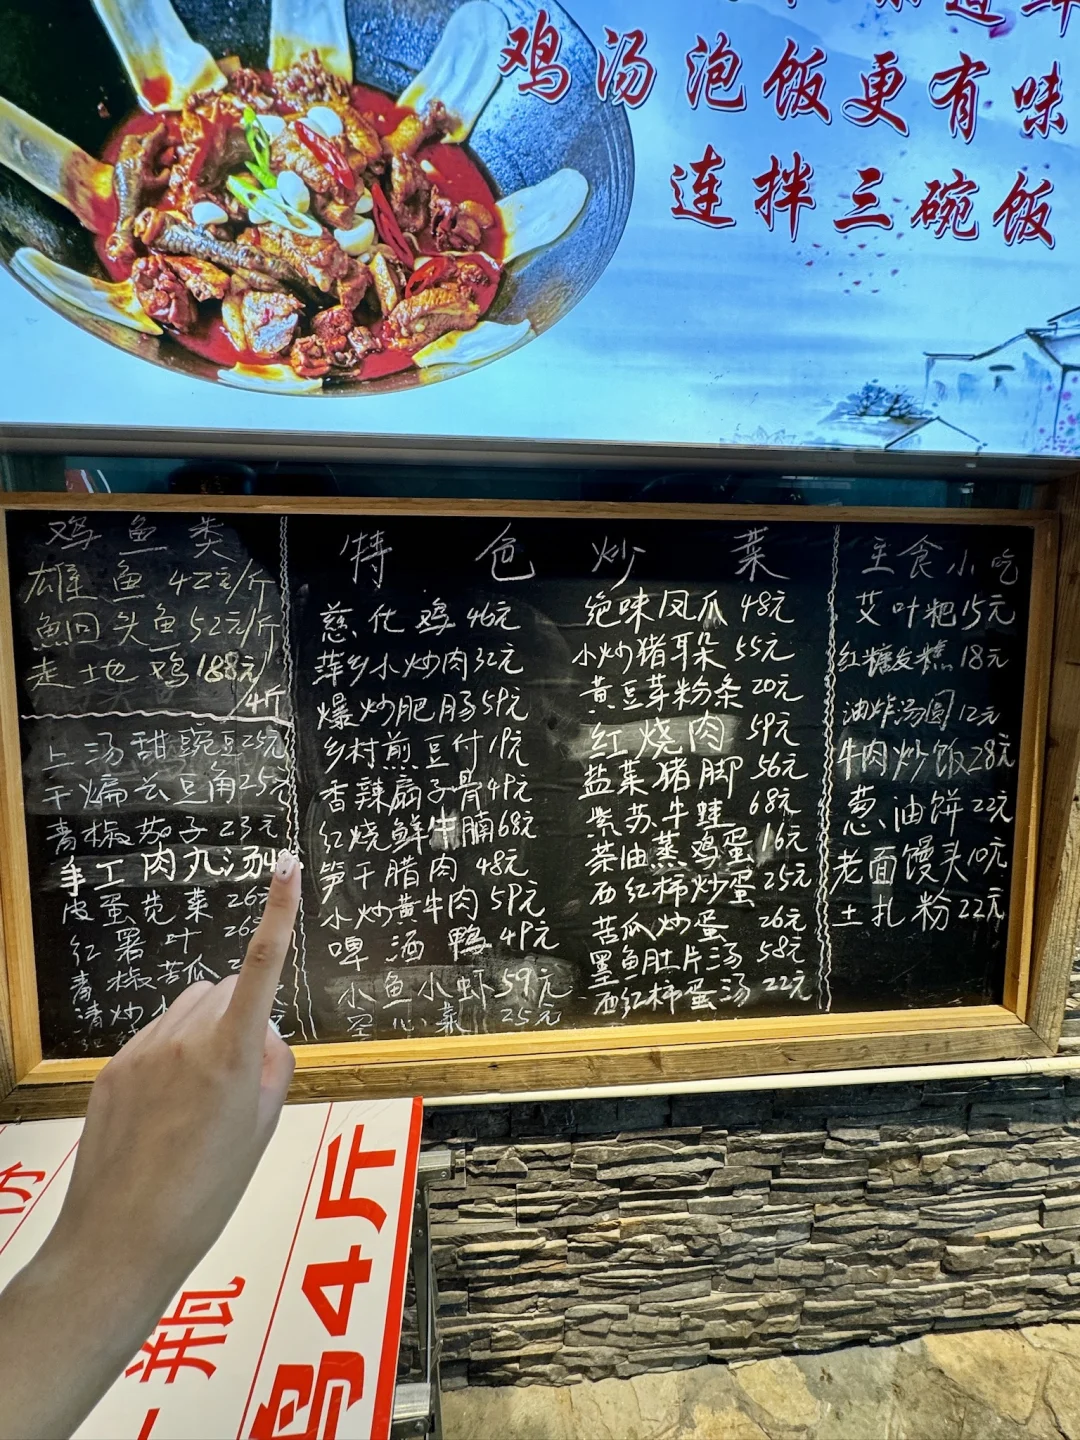 鸡汤泡饭更有味
连拌三碗饭
鸡鱼类
雄鱼 42元/斤
鮰鱼 52元/斤
走地鸡 188元/4斤
上汤甜豌豆 25元
干煸长豆角 25元
青椒茄子 23元
手工肉丸汤
皮蛋苋菜
红薯叶
青椒苦瓜
清炒
特色炒菜
慈化鸡 46元
萍乡小炒肉 32元
爆炒肥肠 59元
乡村煎豆付 19元
香辣扇子骨 49元
红烧鲜牛腩 68元
笋干腊肉 48元
小炒黄牛肉 59元
啤酒鸭 49元
小鱼小虾 59元
空心菜 25元
绝味凤爪 48元
小炒猪耳朵 55元
黄豆芽粉条 20元
红烧肉 59元
盐菜猪脚 56元
紫苏牛蛙 68元
茶油蒸鸡蛋 16元
西红柿炒蛋 25元
苦瓜炒蛋 26元
墨鱼肚片汤 58元
西红柿蛋汤 22元
主食小吃
艾叶粑 15元
红糖发糕 18元
油炸汤圆 12元
牛肉炒饭 28元
葱油饼 22元
老面馒头 10元
土扎粉 22元
一瓶
4斤